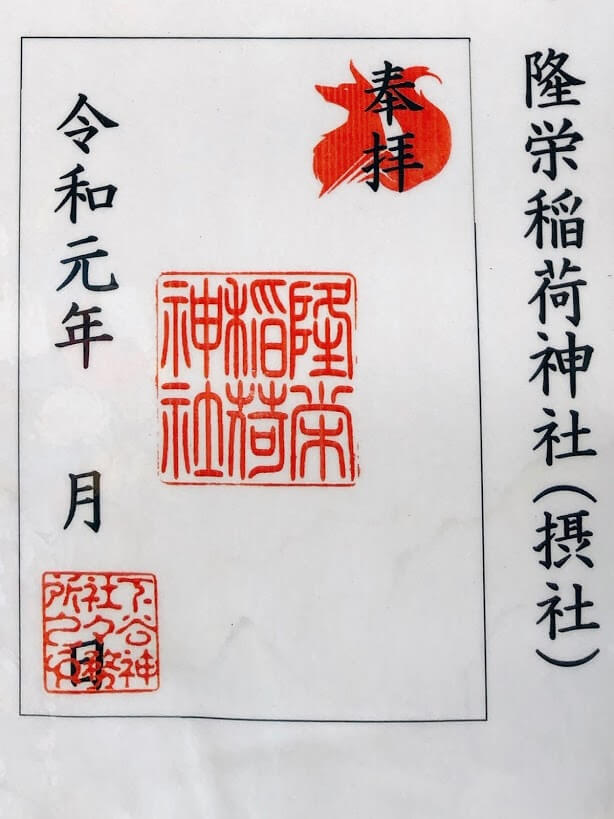 隆栄稲荷神社(摂社)
奉拝
隆栄
稲荷
神社
令和元年 月 日
下谷神
社々務
所之印